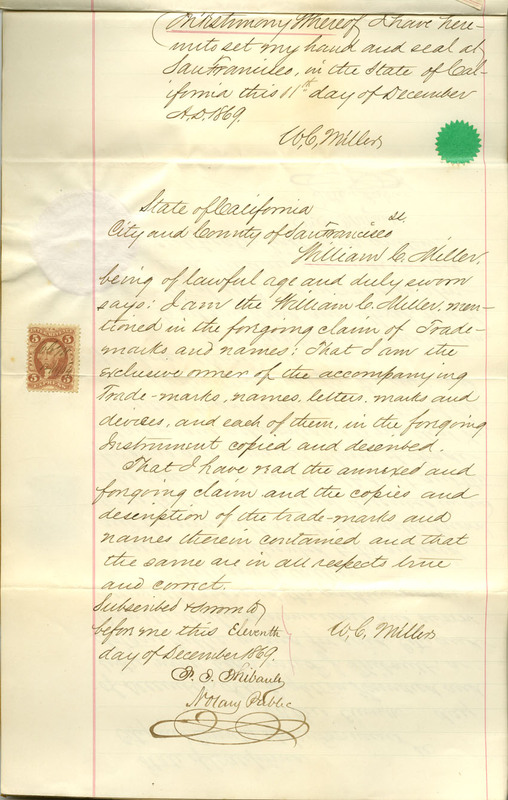 In Testimony Whereof I have here-
unto set my hand and seal at
San Francisco, in the State of Cal-
ifornia this 11th day of December
A.D. 1869.
W. C. Miller
State of California
City and County of San Francisco ss.
William C. Miller,
being of lawful age and duly sworn
says: I am the William C. Miller, men-
tioned in the forgoing claim of Trade-
marks and names: That I am the
exclusive owner of the accompanying
Trade-marks, names, letters, marks and
devices, and each of them, in the forgoing
Instrument copied and described.
That I have read the annexed and
forgoing claim and the copies and
description of the trade-marks and
names therein contained and that
the same are in all respects true
and correct.
Subscribed & sworn to
before me this Eleventh
day of December 1869.
W. C. Miller
Thibault
Notary Public
5 5
5 5